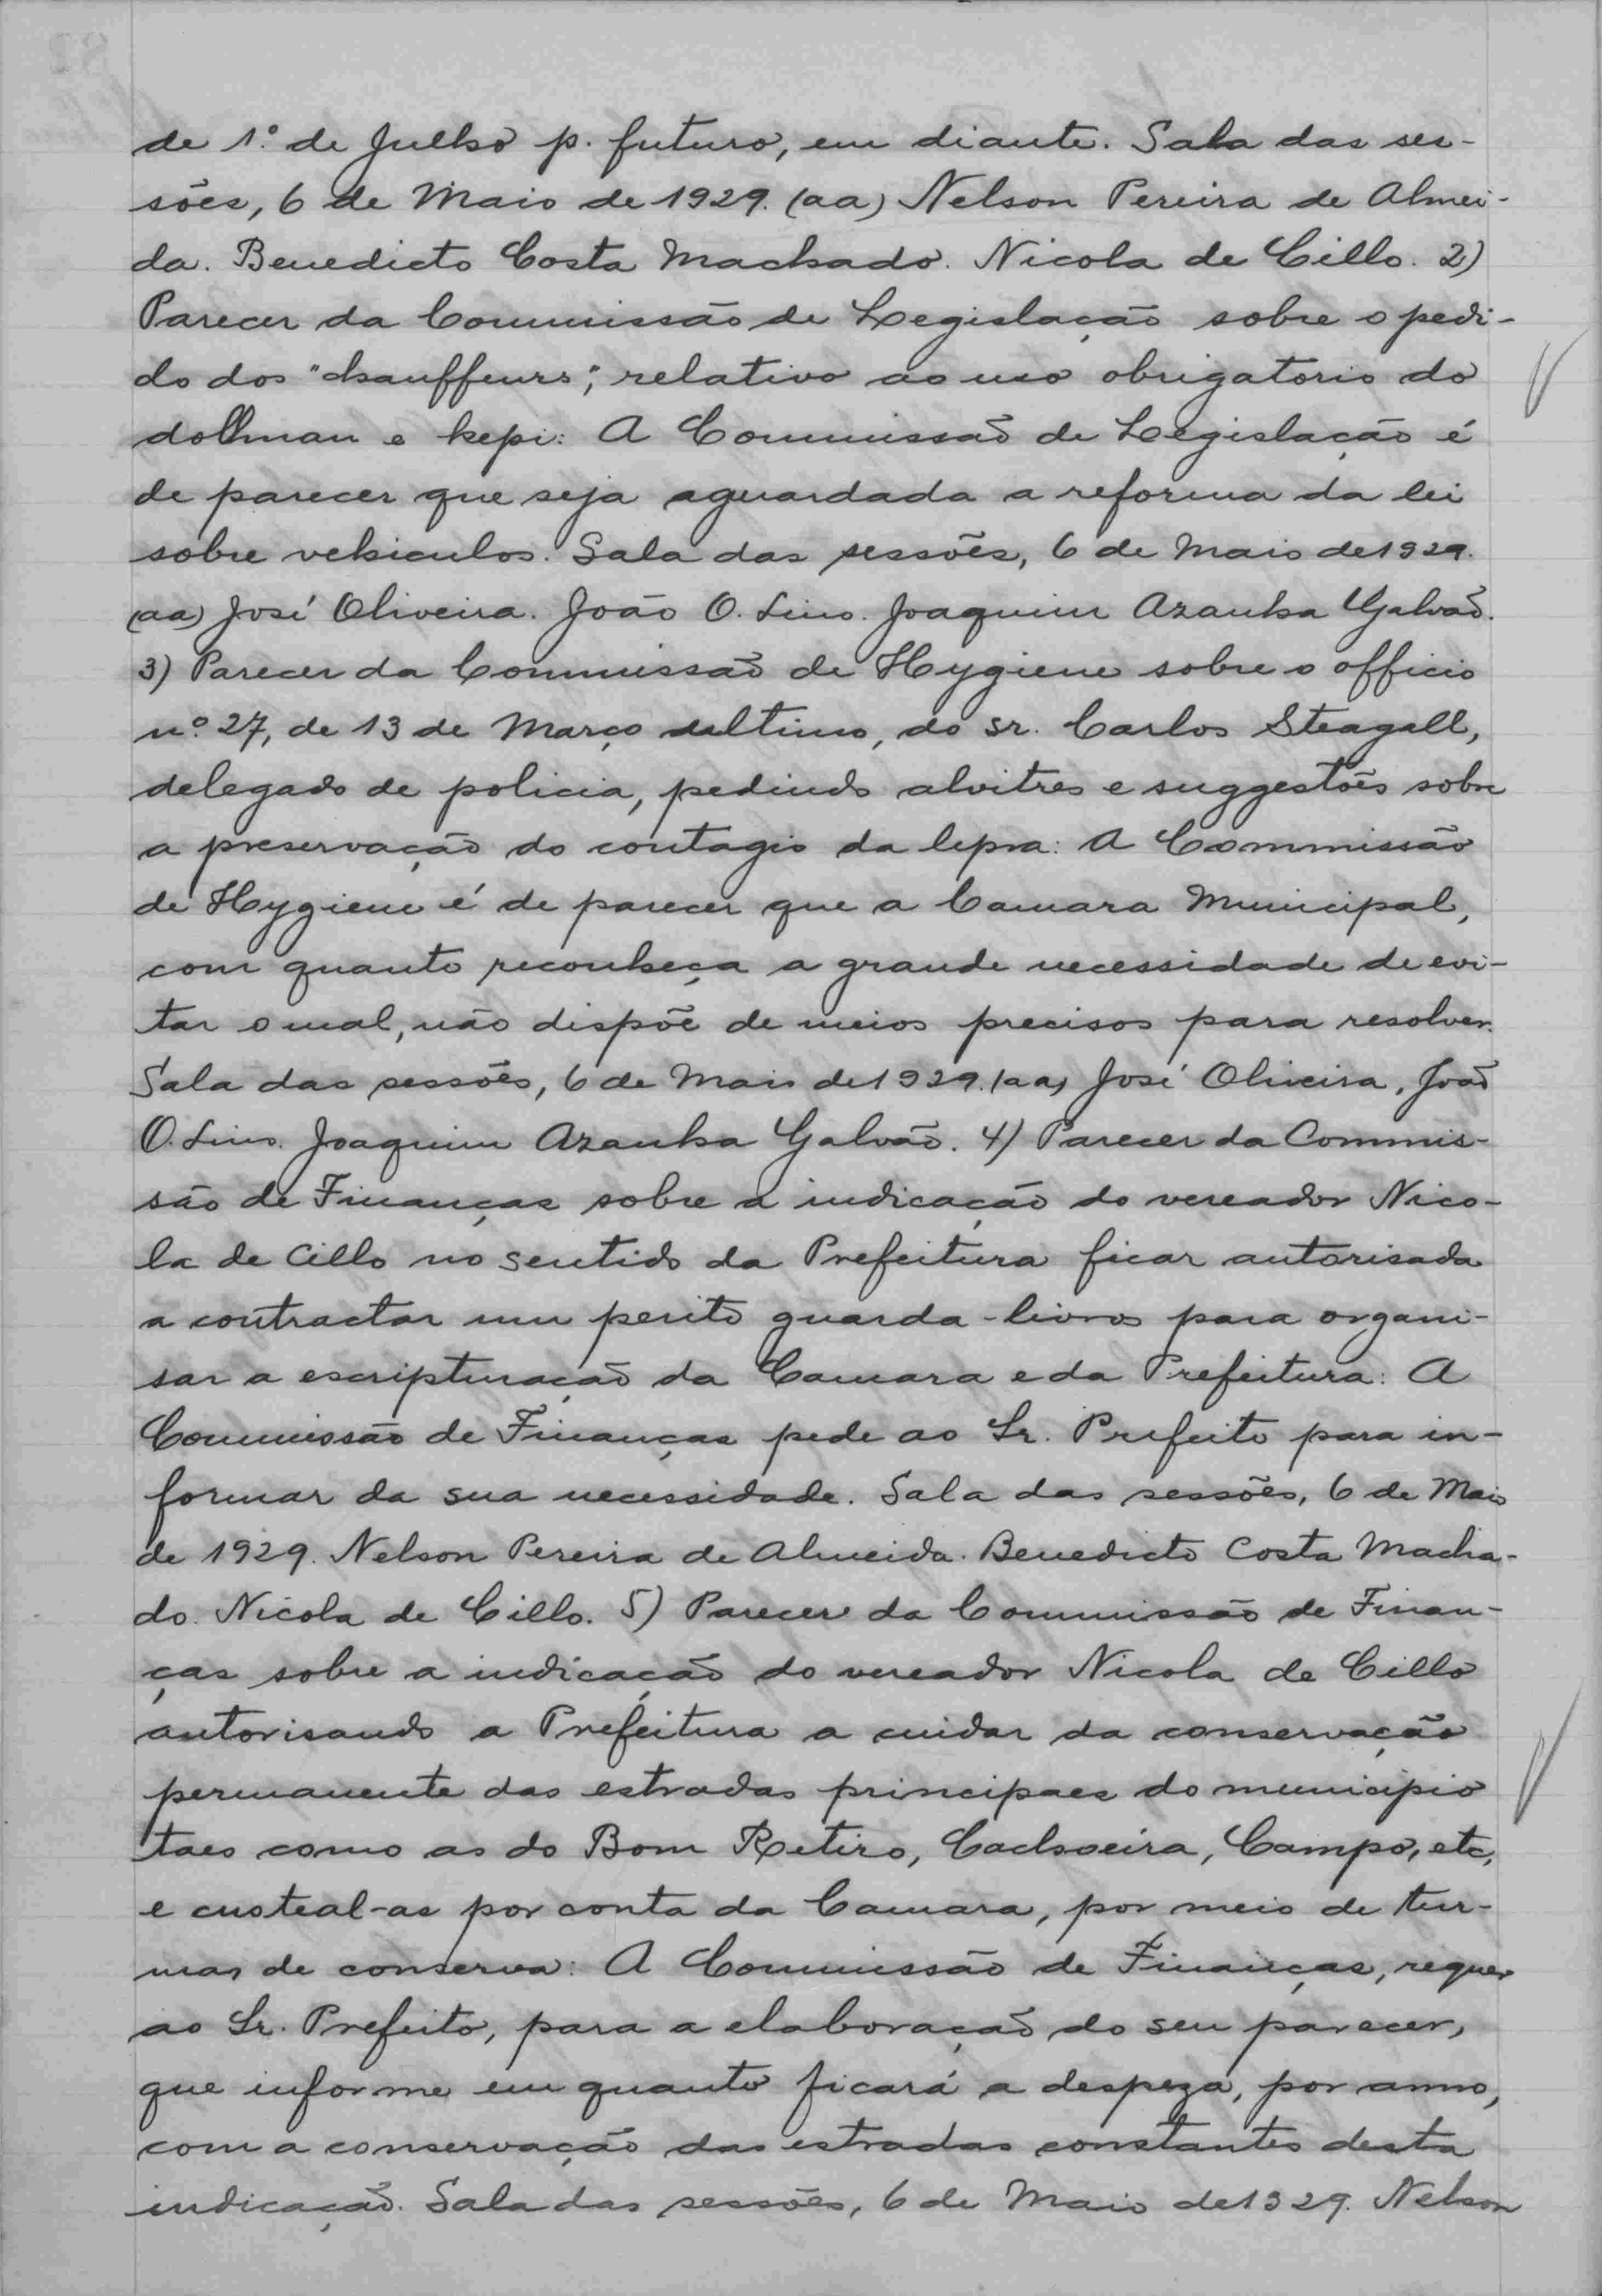 de 1º de Julho p. futuro, em diante. Sala das ses-
sões, 6 de Maio de 1929. (aa) Nelson Pereira de Almei-
da. Benedicto Costa Machado. Nicola de Cillo. 2)
Parecer da Commissão de Legislação sobre o pedi-
do dos "chauffeurs", relativo ao uso obrigatorio do
dollman e kepi: A Commissão de Legislação é
de parecer que seja aguardada a reforma da lei
sobre vehiculos. Sala das sessões, 6 de Maio de 1929.
(aa) José Oliveira. João O. Lins. Joaquim Azanha Galvão.
3) Parecer da Commissão de Hygiene sobre o officio
nº 27, de 13 de Março ultimo, do sr. Carlos Steagall,
delegado de policia, pedindo alvitres e suggestões sobre
a preservação do contagio da lepra: A Commissão
de Hygiene é de parecer que a Camara Municipal,
com quanto reconheça a grande necessidade de evi-
tar o mal, não dispõe de meios precisos para resolver.
Sala das sessões, 6 de Maio de 1929. (aa) José Oliveira, João
O. Lins. Joaquim Azanha Galvão. 4) Parecer da Commis-
são de Finanças sobre a indicação do vereador Nico-
la de Cillo no sentido da Prefeitura ficar autorisada
a contractar um perito guarda-livros para organi-
sar a escripturação da Camara e da Prefeitura: A
Commissão de Finanças pede ao Sr. Prefeito para in-
formar da sua necessidade. Sala das sessões, 6 de Maio
de 1929. Nelson Pereira de Almeida. Benedicto Costa Macha-
do. Nicola de Cillo. 5) Parecer da Commissão de Finan-
ças sobre a indicação do vereador Nicola de Cillo
autorisando a Prefeitura a cuidar da conservação
permanente das estradas principaes do municipio
taes como as do Bom Retiro, Cachoeira, Campo, etc,
e custeal-as por conta da Camara, por meio de tur-
mas de conserva: A Commissão de Finanças, requer
ao Sr. Prefeito, para a elaboração do seu parecer,
que informe em quanto ficará a despeza, por anno,
com a conservação das estradas constantes desta
indicação. Sala das sessões, 6 de Maio de 1929. Nelson